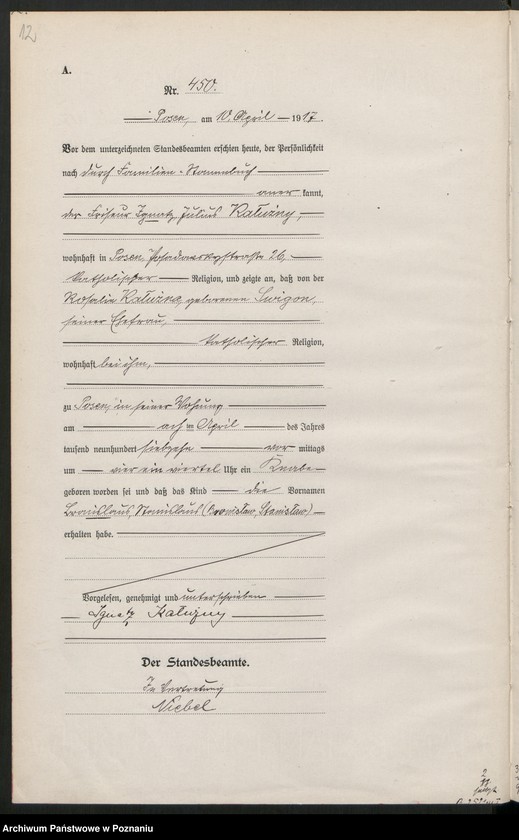 12
A.
Nr. 450.
Posen, am 10. April 1917.
Vor dem unterzeichneten Standesbeamten erschien heute, der Persönlichkeit
nach durch Familien-Stammbuch
anerkannt,
der Friseur Ignatz Julius Kałużny,
wohnhaft in Posen, Posadowskystraße 26,
katholischer Religion, und zeigte an, daß von der
Rosalie Kałużna, geborenen Swigon,
seiner Ehefrau,
katholischer Religion,
wohnhaft bei ihm,
zu Posen, in seiner Wohnung
am acht April des Jahres
tausend neunhundert siebzehn vormittags
um vier ein viertel Uhr ein Knabe
geboren worden sei und daß das Kind die Vornamen
Stanislaus (Bronisław, Stanisław)
erhalten habe.
Vorgelesen, genehmigt und unterschrieben
Ignatz Kałużny
Der Standesbeamte.
In Vertretung
Niebel
Archiwum Państwowe w Poznaniu